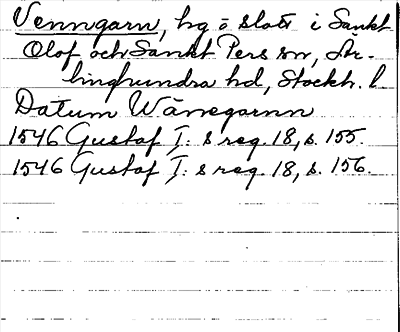 Venngarn, hg o slott i Sankt
Olof och Sankt Pers sn, Är-
linghundra hd, Stockh. l
Datum Wänegarnn
1546 Gustaf I: s reg. 18, s. 155.
1546 Gustaf I: s reg. 18, s. 156.